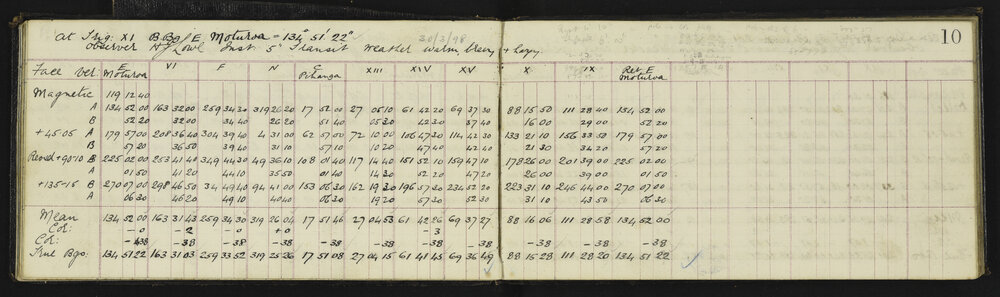 10
at Trig: XI B Bg E Moturoa = 134° 51' 22" 30/3/98
observer Inst 5" Transit Weather warm, breezy + hazy.
Face ver: E Moturoa VI F N C Pihanga XIII XIV XV X IX Ret E Moturoa
Magnetic 119 12 40
A 134 52 00 163 32 00 259 34 30 319 26 20 17 52 00 27 05 10 61 42 20 69 37 30 88 15 50 111 28 40 134 52 00
B 52 20 32 00 34 40 26 20 51 40 05 30 42 30 37 40 16 00 29 00 52 20
+45 05 A 179 57 00 208 36 40 304 39 40 4 31 00 62 57 00 72 10 00 106 47 30 114 42 30 133 21 10 156 33 50 179 57 00
B 57 20 36 50 39 40 31 10 57 10 10 20 47 40 42 40 21 30 34 20 57 20
Revsd +90 10 B 225 02 00 253 41 40 349 44 30 49 36 10 108 01 40 117 14 40 151 52 10 159 47 10 178 26 00 201 39 00 225 02 00
A 01 50 41 20 44 10 35 50 01 40 14 30 52 20 47 20 26 00 39 00 01 50
+135 15 B 270 07 00 298 46 50 34 49 40 94 41 00 153 06 30 162 19 30 196 57 30 234 52 20 223 31 10 246 44 00 270 07 00
A 06 30 46 20 49 10 40 40 06 30 19 20 57 30 52 30 31 10 43 50 06 30
Mean 134 52 00 163 31 43 259 34 30 319 26 04 17 51 46 27 04 53 61 42 26 69 37 27 88 16 06 111 28 58 134 52 00
Cor: -0 -2 -0 +0 -3
Cor: -38 -38 -38 -38 -38 -38 -38 -38 -38 -38
True Bgs: 134 51 22 163 31 03 259 33 52 319 25 26 17 51 08 27 04 15 61 41 45 69 36 49 88 15 28 111 28 20 134 51 22